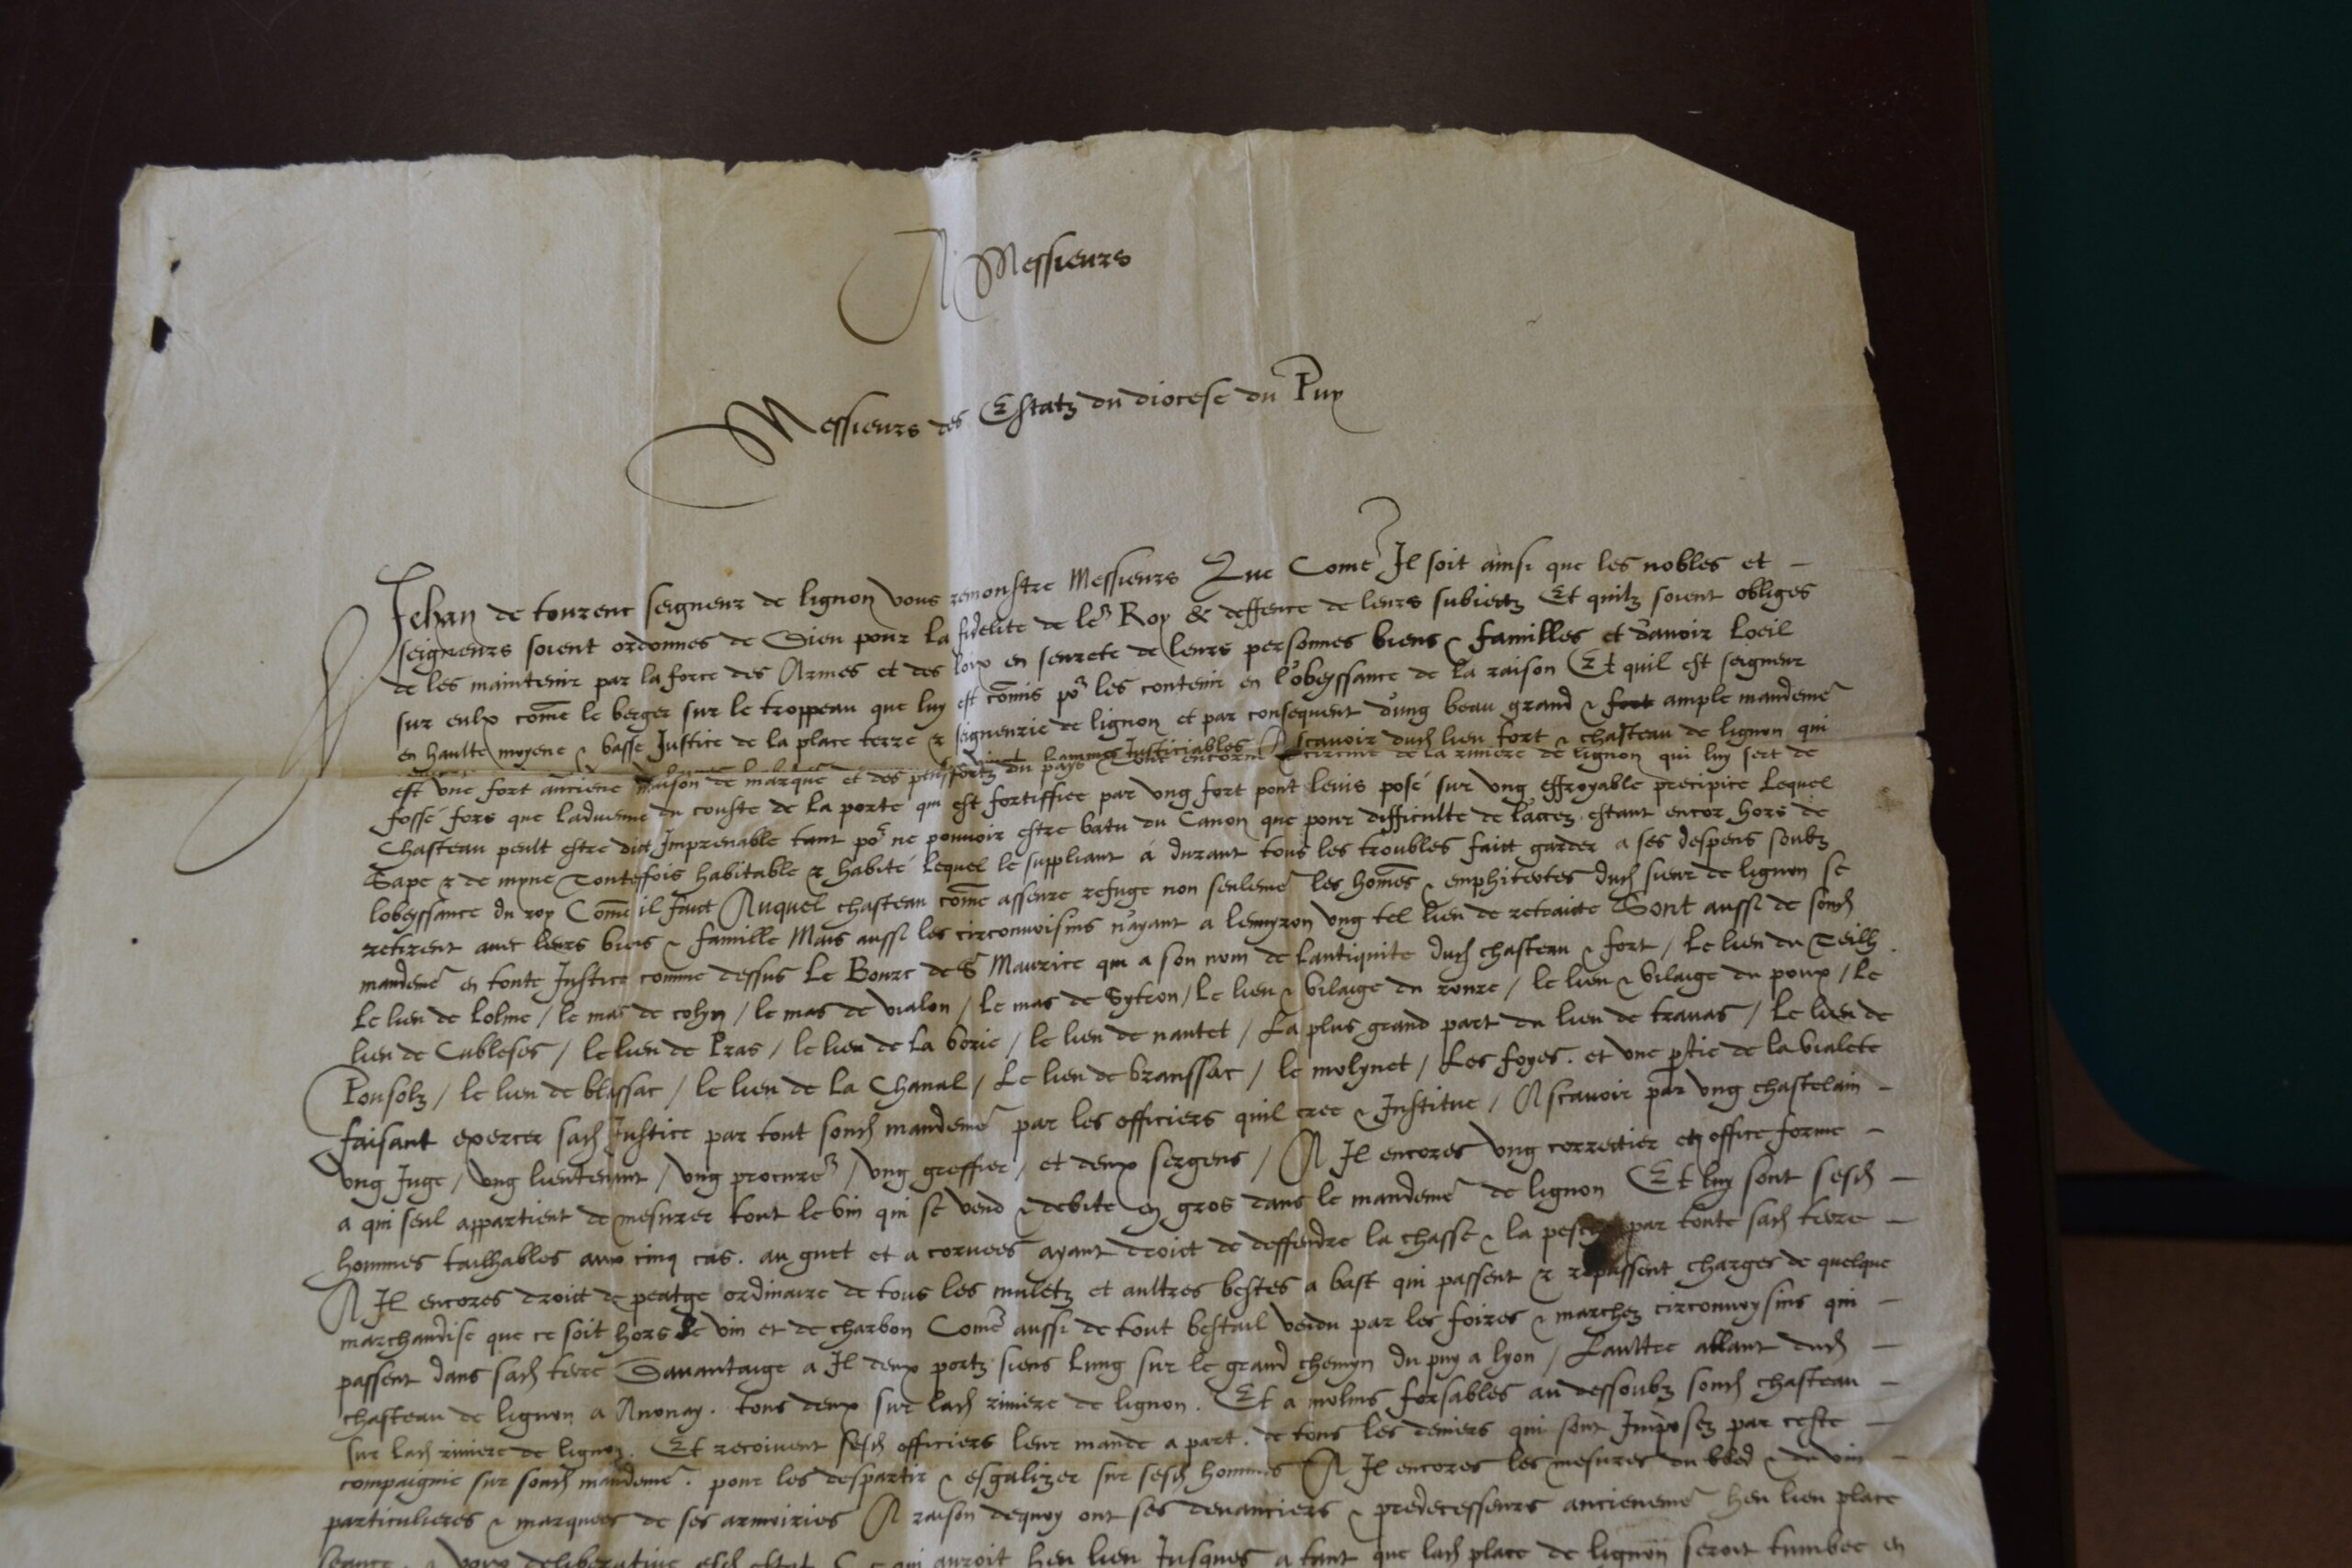 A Messieurs
Messieurs des Estatz du diocese du Puy
Jehan de tourenc seigneur de lignon vous remonstre Messieurs Que Come Il soit ainsi que les nobles et
seigneurs soient ordonnes de Dieu pour la fidelite de le^r Roy & deffence de leurs subiectz Et quilz soient obliges
de les maintenir par la force des Armes et des loix en seurete de leurs personnes biens & familles et d'avoir Loeil
sur eulx come le berger sur le troppeau que luy est comis po^r les contenir en l'obeyssance de la raison Et quil est seigneur
en haulte moyene & basse Justice de la place terre & seigneurie de lignon et par consequent d'ung beau grand & fort ample mandeme^t
hommes Justiciables A scavoir dud lieu fort & chasteau de lignon qui
est une fort anciene maison de marque et des plus fortz du pays de la riviere de lignon qui luy sert de
fossé fors que ladvenue du couste de la porte qui est fortiffiee par ung fort pont levis posé sur ung effroyable precipice Lequel
Chasteau peult estre dict Imprenable tant po^r ne pouvoir estre batu du Canon que pour difficulte de l'accez estant encor hors de
Sape & de myne Toutesfois habitable & habité Lequel le suppliant á durant tous les troubles faict garder a ses despens soubz
lobeyssance du roy Come il faut Auquel chasteau come asseure refuge non seuleme^t les homes & emphiteotes dud sieur de lignon se
retirent avec leurs biens & famille Mais aussi les circonvoisins n'ayant a lenviron ung tel lieu de retraicte Sont aussi de sond
mandeme^t en toute Justice comme dessus Le Bourc de S^t Maurice qui a son nom de Lantiquite dud chasteau & fort / Le lieu du Teilh
Le lieu de Lolme / le mas de cohn / le mas de vialon / Le mas de Sytron / Le lieu & vilaige du roure / le lieu & vilaige du poux / Le
lieu de Cubleses / le lieu de Pras / le lieu de La borie / le lieu de nantet / La plus grand part du lieu de travas / Le lieu de
Pousolz / le lieu de blassac / le lieu de La Chanal / Le lieu de branssac / le molynet / Les foyes . et une p^rtie de la vialete
faisant exercer sad Justice par tout sond mandeme^t par les officiers quil cree & Institue / A scavoir par ung chastelain
ung Juge / ung lieutenant / ung procure^r / ung greffier / et deux sergens / A Il encores ung correctier en office forme
a qui seul appartient de mesurer tout le vin qui se vend & debite en gros dans le mandeme^t de lignon Et luy sont sesd
hommes tailhables aux cinq cas . au guet et a corvees ayant droict de deffendre la chasse & la pesche par toute sad terre
A Il encores droict de peatge ordinaire de tous les muletz et aultres bestes a bast qui passent & repassent charges de quelque
marchandise que ce soit hors de vin et de charbon Come aussi de tout bestail vendu par les foires & marchez circonvoysins qui
passent dans sad terre Davantaige a Il deux portz siens Lung sur le grand chemyn du puy a lyon / Laultre allant dud
chasteau de lignon a Anonay . tous deux sur lad riviere de lignon . Et a molins forsables au dessoubz sond chasteau
sur lad riviere de lignon . Et recoivent sesd officiers leur mande a part . de tous les deniers qui sont Imposez par ceste
compaignie sur sond mandeme^t . pour les despartir & esgalizer sur sesd hommes A Il encores les mesures du bled & du vin
particulieres & marquees de ses armoiries A raison dequoy ont ses devanciers & predecesseurs ancieneme^t heu lieu place
seance & voix deliberative esd estat Ce qui auroit heu lieu Jusques a tant que lad place de lignon seroit tumbee en